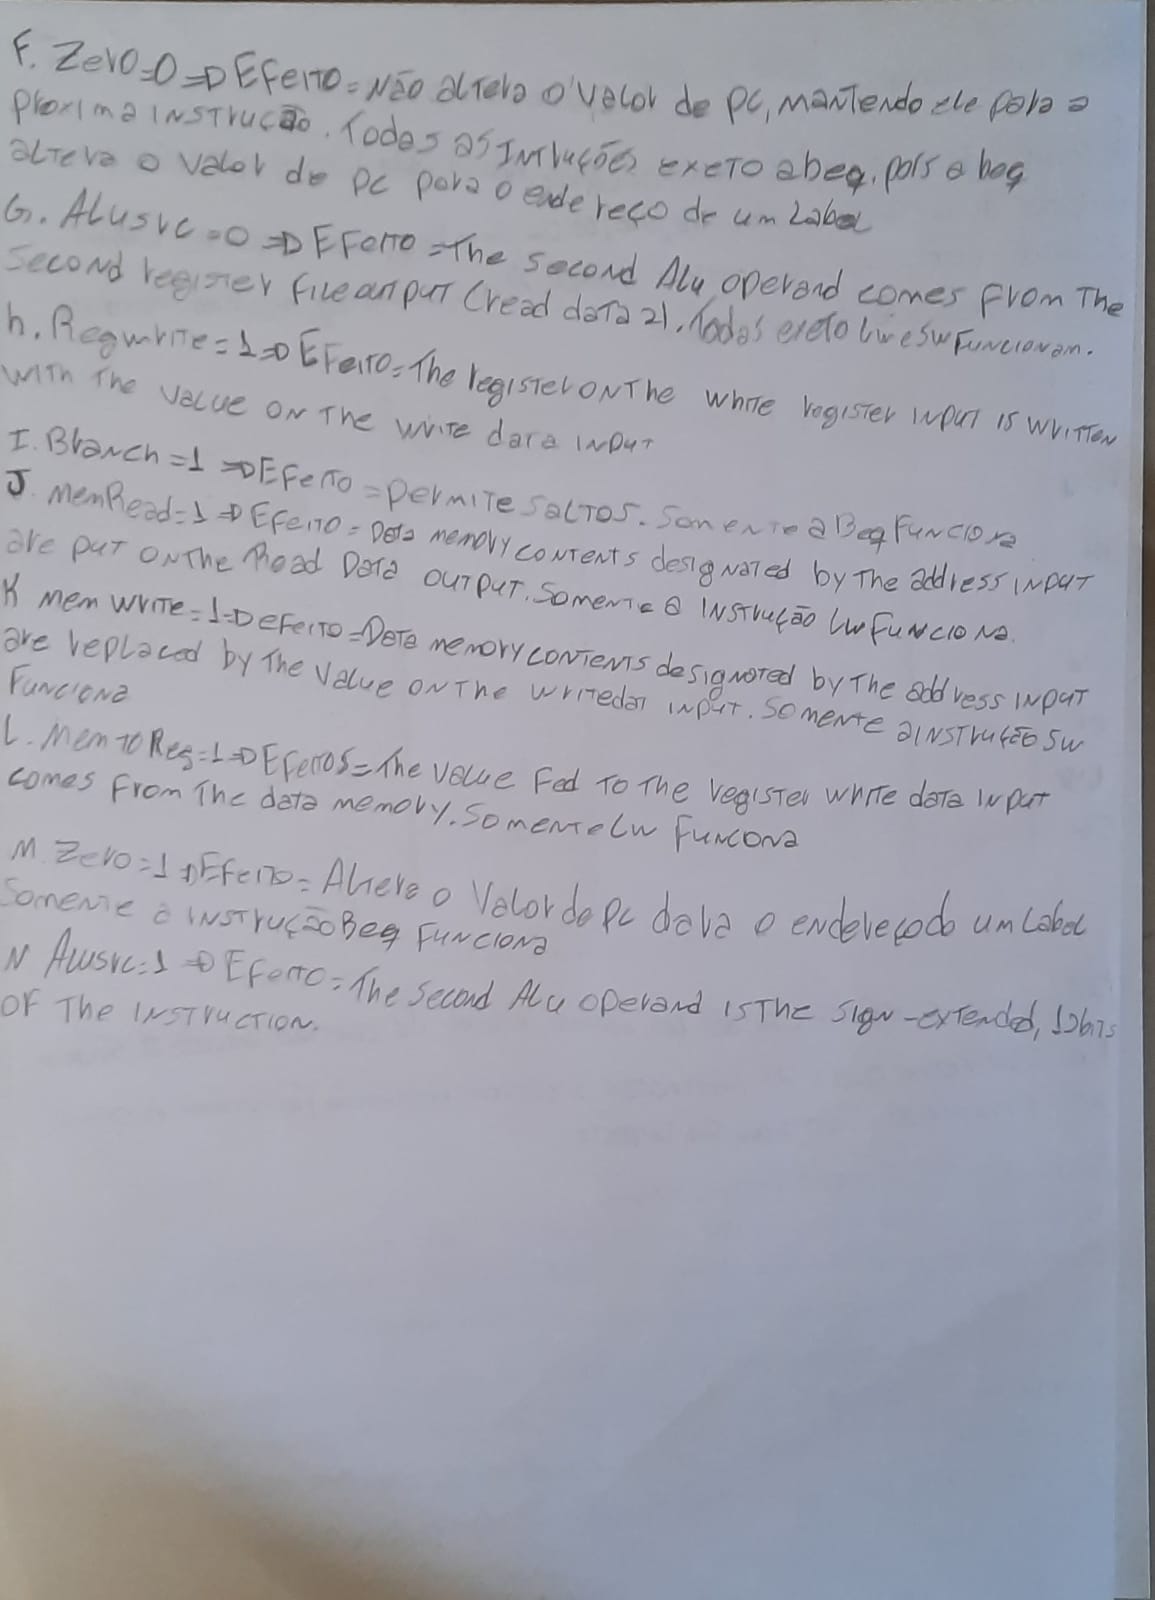 F. Zero=0 => Efeito = Não altera o valor de pc, mantendo ele para a
proxima instrução. Todas as Intruções exeto a beq, pois a beq
altera o valor de pc para o endereço de um Label
G. Alusrc=0 => Efeito = The second Alu operand comes from The
second register file output (read data 2). Todas exeto lw e sw Funcionam.
h. Regwrite=1 => Efeito = The register on The write register input is written
with The value on The write data input
I. Branch=1 => Efeito = permite saltos. Somente a Beq Funciona
J. MemRead=1 => Efeito = Data memory contents designated by The address input
are put on the Read Data output. Somente a instrução lw funciona.
K Mem write=1 => Efeito = Data memory contents designated by The address input
are replaced by The Value on The writedat input. Somente a instrução sw
Funciona
L. Mem to Reg=1 => Efeitos = The value Fed To The register write data input
comes From The data memory. Somente lw Funcona
M. Zero=1 => Efeito = Altera o Valor do pc o endereço do um Label
Somente a instrução Beq Funciona
N Alusrc=1 => Efeito = The second Alu operand is The sign-extended, 12bits
of The Instruction.